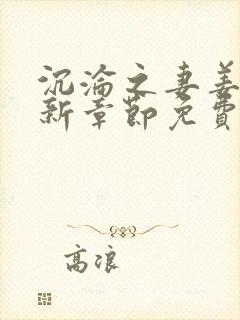 沉淪之妻姜
新章節免費
高浪